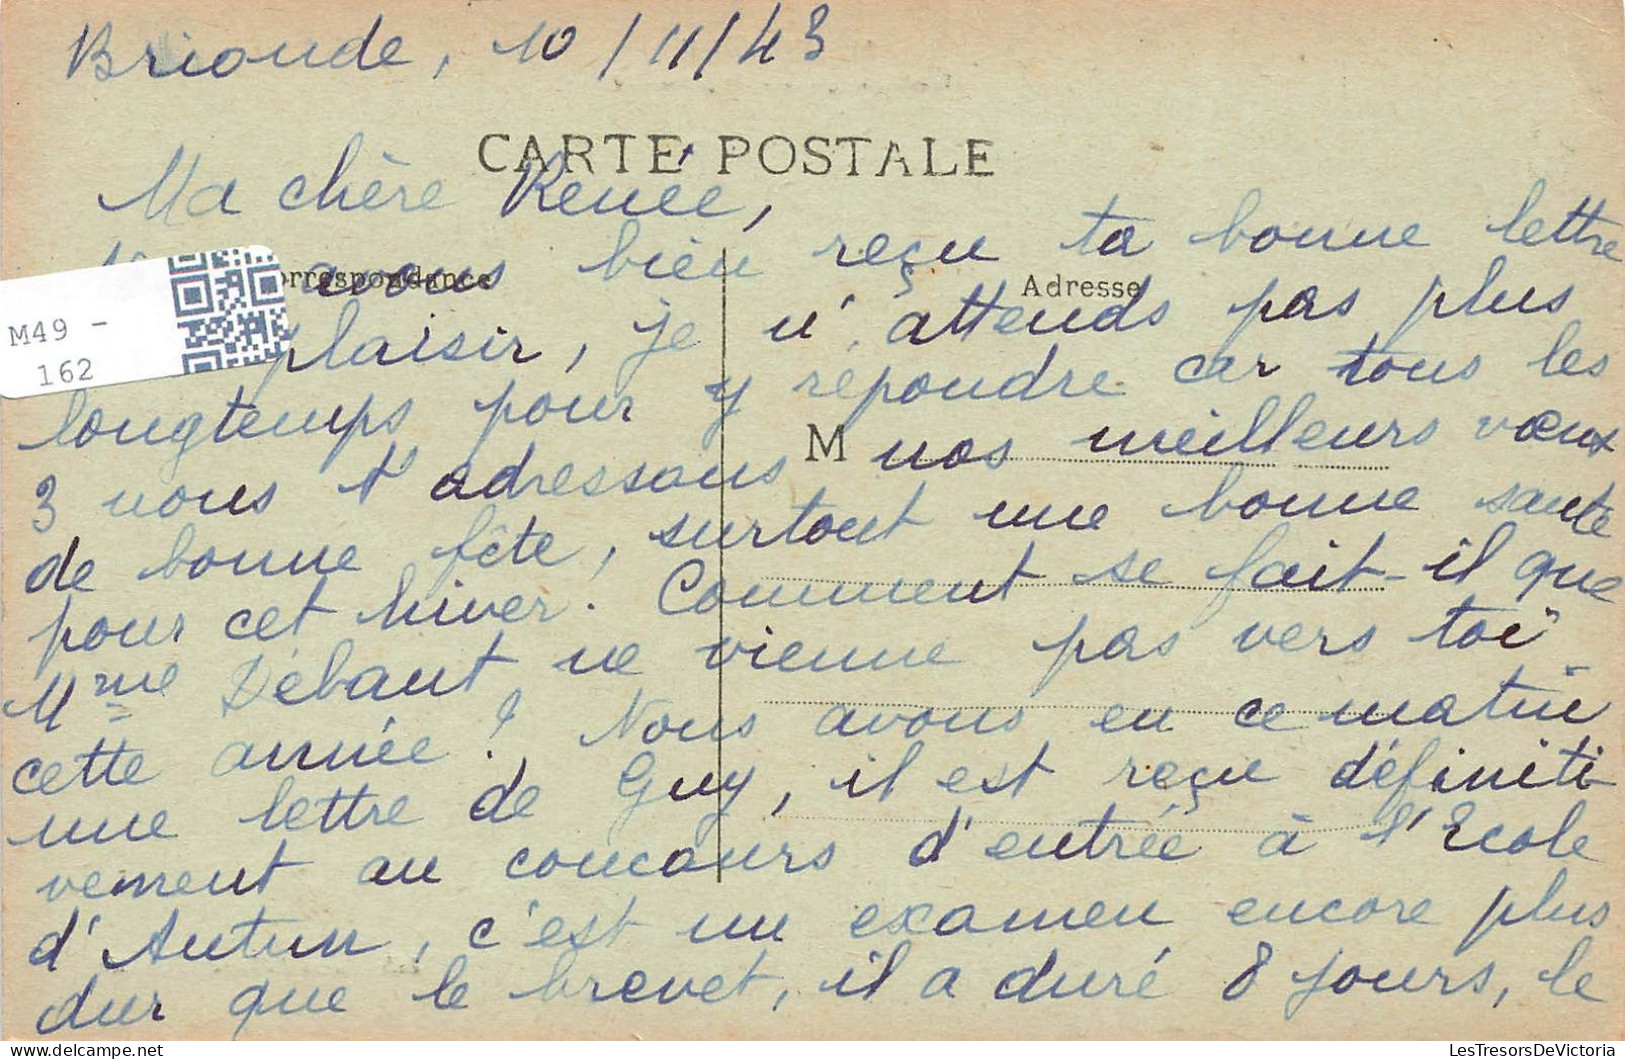 Brioude, 10/11/43
CARTE POSTALE
Ma chère Renée,
avons bien reçu ta bonne lettre
orrespondance
Adresse
M49 -
162
plaisir, je n'attends pas plus
longtemps pour y répondre car tous les
M
3 nous t'adressons nos meilleurs vœux
de bonne fête, surtout une bonne santé
pour cet hiver. Comment se fait-il que
Mme Débaut ne vienne pas vers toi
cette année? Nous avons eu ce matin
une lettre de Guy, il est reçu définiti
vement au concours d'entrée à l'Ecole
d'Autun, c'est un examen encore plus
dur que le brevet, il a duré 8 jours, le
LesTresorsDeVictoria